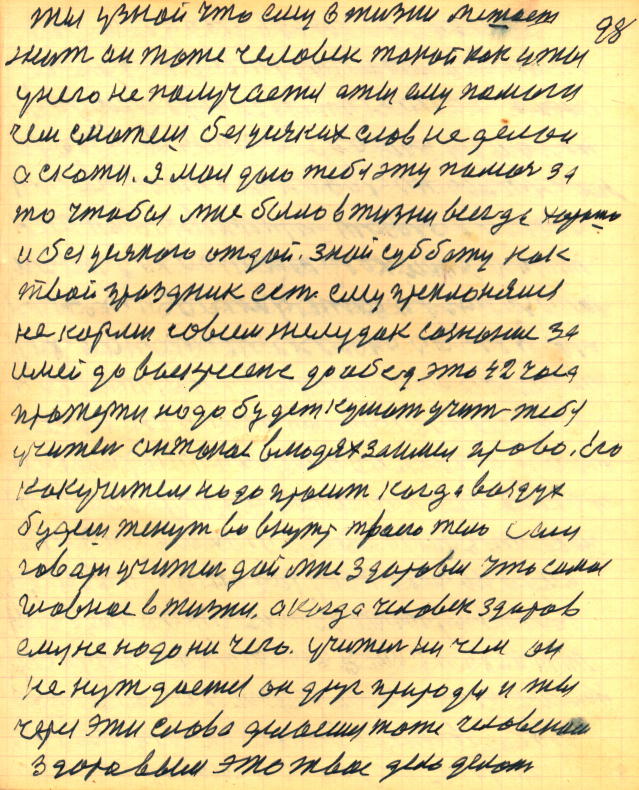 98
ты узной что ему в жизни мешает
жит он тоже человек такой как и ты
у него не получается а ты ему помоги
чем сможеш без всяких слов не делой
а скажи. Я мол даю тебе эту помоч за
то чтобы мне было в жизни всегда хорошо
и без всякого отдай. Знай субботу как
твой праздник ест. ему преклоняися
не корми совсем желудок сознание за
имей до воскресене до обед это 42 часа
протерпи надо будет кушат учит тебя
учител он такое в людях заимел право. Его
как учителя надо просит когда воздух
будеш тянут во внутр твоего тело сам
говари учител дай мне здоровя что самое
главное в жизни. а когда человек здоров
ему не надо ни чего. учител ни чем он
не нуждается он друг природы и ты
через эти слова делаешся тоже человеком
здоровым это твое дело делат